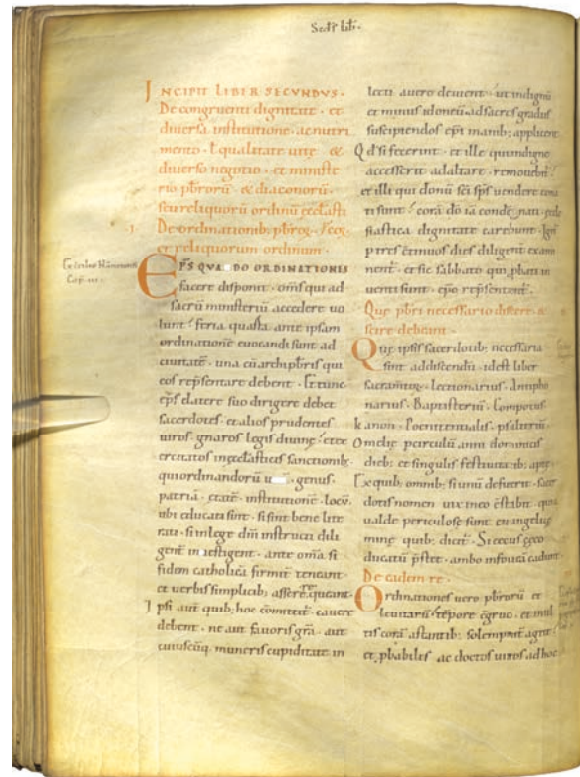 Secds lib.
INCIPIT LIBER SECVNDVS.
De congruenti dignitate · et
diuersa institutione · ac nutri
mento · ł qualitate uite &
diuerso negotio · et ministe
rio pb̄rorū · & diaconorū ·
seu reliquorū ordinū ęcclasti
·I· De ordinationib; pb̄rog · ꝫ cog
et reliquorum ordinum ·
EP̄S QVA DO ORDINATIONES
facere disponit · om̄s qui ad
sacrū ministeriū accedere uo
lunt · feria quarta ante ipsam
ordinationē euocandi sunt ad
ciuitatē · una cū archipb̄ris qui
eos rep̄sentare debent · Et tunc
ep̄s e latere suo dirigere debet
sacerdotes · et alios prudentes
uiros gnaros legis diuinę · et ex
ercitatos in ęcclasticis sanctionib;
qui ordinandorū genus ·
patria · etatē · institutionē · locū ·
ubi educati sint · si sint bene lite
rati · si in lege dn̄i instructi dili
gent̄ in estigent · ante om̄a si
fidem catholicā firmit̄ teneant
et uerbis simplicib; asserē queant ·
Ipsi aut̄ quib; hoc com̄ittit̄ · cauere
debent · ne aut fauoris gr̄a · aut
cuiuscūq, muneris cupiditate in
lecti a uero deuient · ut indignū
et minus idoneū ad sacros gradus
suscipiendos ep̄i manib; applicent
Qd̓ si fecerint · et ille qui indigne
accesserit ad altare · remouebit̄
et illi qui donū sc̄i sp̄s uendere cona
ti sunt · corā dō ia condēnati · ęccle
siastica dignitate carebunt · Igit̄
p tres c̄tinuos dies diligent̄ exam
nent̄ · et sic sabbato qui p̄bati in
uenti sunt · ep̄o rep̄sentent̄ ·
Que pb̄ri necessario discere &
scire debeant ·
Que ipsis sacerdotib; necessaria
sint ad discendū · id est liber
sacramtog · lectionarius · Antipho
narius · Baptisteriū · Compotus
kanon · Poenitentialis · psalteriū ·
Omelię per circulū anni dominicis
dieb; et singulis festiuitatib; aptę ·
Ex quib; omnib; si unū defuerit · sacer
dotis nomen uix in eo c̄stabit · quia
ualde periculosę sunt euangelicę
minę quib; dicit̄ · Si cecus ceco
ducatū p̄stet · ambo in fouea cadunt ·
De eadem re ·
Ordinationes uero pb̄rorū et
leuitarū · tēpore c̄gruo · et mul
tis corā astantib; solempnit̄ agit̄
et p̱babiles ac doctos uiros ad hoc